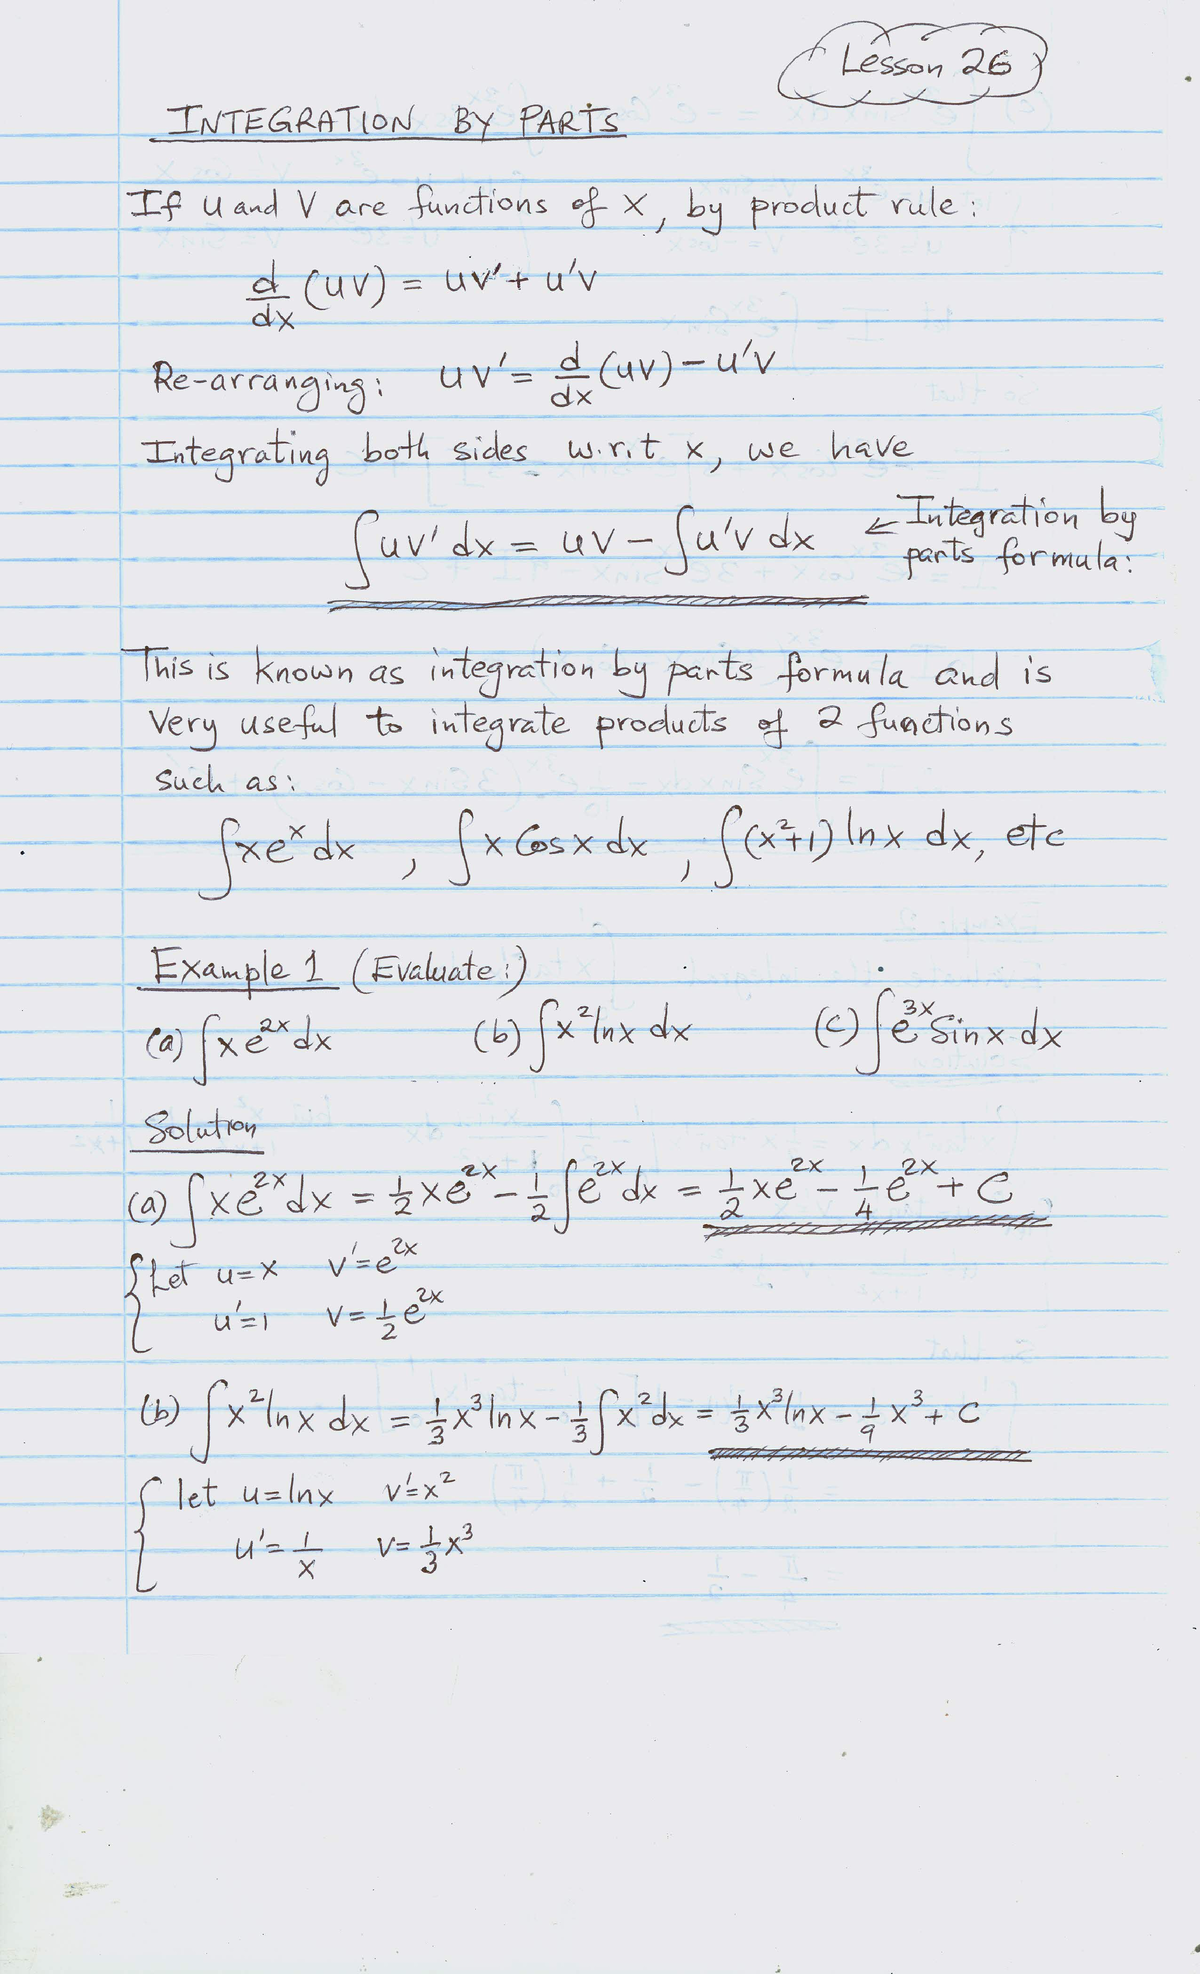 Lesson 26
INTEGRATION BY PARTS
If u and v are functions of x, by product rule:
d/dx (uv) = uv' + u'v
Re-arranging: uv' = d/dx (uv) - u'v
Integrating both sides w.r.t x, we have
∫uv' dx = uv - ∫u'v dx ← Integration by
parts formula:
This is known as integration by parts formula and is
very useful to integrate products of 2 functions
such as:
∫xe^x dx , ∫x Cosx dx , ∫(x²+1) lnx dx, etc
Example 1 (Evaluate:)
(a) ∫xe^2x dx (b) ∫x² lnx dx (c) ∫e^3x Sinx dx
Solution
(a) ∫xe^2x dx = 1/2 xe^2x - 1/2 ∫e^2x dx = 1/2 xe^2x - 1/4 e^2x + C
{ Let u=x v'=e^2x
u'=1 v=1/2 e^2x
(b) ∫x² lnx dx = 1/3 x³ lnx - 1/3 ∫x² dx = 1/3 x³ lnx - 1/9 x³ + C
{ let u=lnx v'=x²
u'=1/x v=1/3 x³